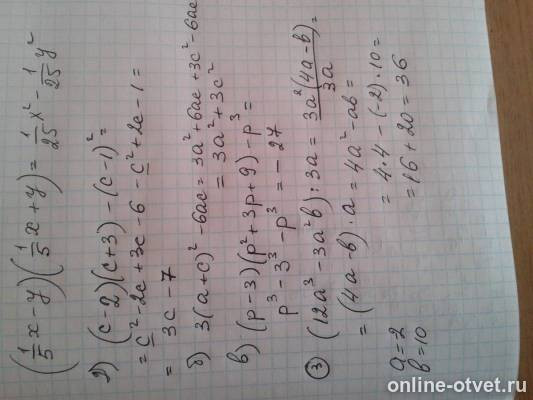 (1/5 x - y)(1/5 x + y) = 1/25 x² - 1/25 y²
2) (c-2)(c+3) - (c-1)² =
= c² - 2c + 3c - 6 - c² + 2c - 1 =
= 3c - 7
б) 3(a+c)² - 6ac = 3a² + 6ac + 3c² - 6ac
= 3a² + 3c²
в) (p-3)(p²+3p+9) - p³ =
p³ - 3³ - p³ = -27
③ (12a³ - 3a²b) : 3a = 3a²(4a-b)/3a =
= (4a-b)·a = 4a² - ab =
= 4·4 - (-2)·10 =
= 16 + 20 = 36
a = 2
b = 10
online-otvet.ru